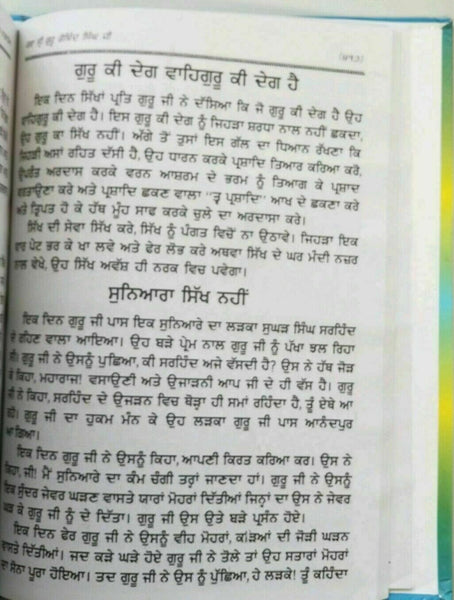 ਸ੍ਰੀ ਗੁਰੂ ਗੋਬਿੰਦ ਸਿੰਘ ਜੀ
ਗੁਰੂ ਕੀ ਦੇਗ ਵਾਹਿਗੁਰੂ ਕੀ ਦੇਗ ਹੈ
ਇਕ ਦਿਨ ਸਿੱਖਾਂ ਪ੍ਰਤਿ ਗੁਰੂ ਜੀ ਨੇ ਦੱਸਿਆ ਕਿ ਜੋ ਗੁਰੂ ਕੀ ਦੇਗ ਹੈ ਉਹ
ਵਾਹਿਗੁਰੂ ਕੀ ਦੇਗ ਹੈ। ਇਸ ਗੁਰੂ ਕੀ ਦੇਗ ਨੂੰ ਜਿਹੜਾ ਸ਼ਰਧਾ ਨਾਲ ਨਹੀਂ ਛਕਦਾ,
ਉਹ ਗੁਰੂ ਕਾ ਸਿੱਖ ਨਹੀਂ। ਅੱਗੇ ਤੋਂ ਤੁਸਾਂ ਇਸ ਗੱਲ ਦਾ ਧਿਆਨ ਰੱਖਣਾ ਕਿ
ਜਿਹੜੀ ਅਸਾਂ ਰਹਿਤ ਦੱਸੀ ਹੈ, ਉਹ ਧਾਰਨ ਕਰਕੇ ਪ੍ਰਸ਼ਾਦਿ ਤਿਆਰ ਕਰਿਆ ਕਰੋ,
ਉਪਰੰਤ ਅਰਦਾਸ ਕਰਕੇ ਵਰਨ ਆਸ਼ਰਮ ਦੇ ਭਰਮ ਨੂੰ ਤਿਆਗ ਕੇ ਪ੍ਰਸ਼ਾਦ
ਵਰਤਾਉਣਾ ਕਰੇ ਅਤੇ ਪ੍ਰਸ਼ਾਦਿ ਛਕਣ ਵਾਲਾ ਪ੍ਰਸ਼ਾਦਿ'' ਆਖ ਦੇ ਛਕਣਾ ਕਰੇ
ਅਤੇ ਤ੍ਰਿਪਤ ਹੋ ਕੇ ਹੱਥ ਮੂੰਹ ਸਾਫ ਕਰਕੇ ਚੁਲੇ ਦਾ ਅਰਦਾਸਾ ਕਰੇ।
ਸਿੱਖ ਦੀ ਸੇਵਾ ਸਿੱਖ ਕਰੇ, ਸਿੱਖ ਨੂੰ ਪੰਗਤ ਵਿਚੋਂ ਨਾ ਉਠਾਵੇ। ਜਿਹੜਾ ਇਕ
ਵਾਰ ਪੇਟ ਭਰ ਕੇ ਖਾ ਲਵੇ ਅਤੇ ਫੇਰ ਲੋਭ ਕਰੇ ਅਥਵਾ ਸਿੱਖ ਦੇ ਘਰ ਮੰਦੀ ਨਜ਼ਰ
ਨਾਲ ਵੇਖੇ, ਉਹ ਸਿੱਖ ਅਵੱਸ਼ ਹੀ ਨਰਕ ਵਿਚ ਪਵੇਗਾ।
ਸੁਨਿਆਰਾ ਸਿੱਖ ਨਹੀਂ
ਇਕ ਦਿਨ ਗੁਰੂ ਜੀ ਪਾਸ ਇਕ ਸੁਨਿਆਰੇ ਦਾ ਲੜਕਾ ਸੁਘੜ ਸਿੰਘ ਸਰਹਿੰਦ
ਦੇ ਰਹਿਣ ਵਾਲਾ ਆਇਆ। ਉਹ ਬੜੇ ਪ੍ਰੇਮ ਨਾਲ ਗੁਰੂ ਜੀ ਨੂੰ ਪੱਖਾ ਝਲ ਰਿਹਾ
ਸੀ। ਗੁਰੂ ਜੀ ਨੇ ਉਸਨੂੰ ਪੁਛਿਆ, ਕੀ ਸਰਹਿੰਦ ਅਜੇ ਵੱਸਦੀ ਹੈ? ਉਸ ਨੇ ਹੱਥ ਜੋੜ
ਕੇ ਕਿਹਾ, ਮਹਾਰਾਜ! ਵਸਾਉਣੀ ਅਤੇ ਉਜਾੜਨੀ ਆਪ ਜੀ ਦੇ ਹੀ ਵੱਸ ਹੈ। ਗੁਰੂ
ਜੀ ਨੇ ਕਿਹਾ, ਸਰਹਿੰਦ ਦੇ ਉਜੜਨ ਵਿਚ ਥੋੜ੍ਹਾ ਹੀ ਸਮਾਂ ਰਹਿੰਦਾ ਹੈ, ਤੂੰ ਏਥੇ ਆ
ਰਹੀਂ। ਗੁਰੂ ਜੀ ਦਾ ਹੁਕਮ ਮੰਨ ਕੇ ਉਹ ਲੜਕਾ ਗੁਰੂ ਜੀ ਪਾਸ ਆਨੰਦਪੁਰ
ਆ ਗਿਆ।
ਇਕ ਦਿਨ, ਗੁਰੂ ਜੀ ਨੇ ਉਸਨੂੰ ਕਿਹਾ, ਆਪਣੀ ਕਿਰਤ ਕਰਿਆ ਕਰ। ਉਸ ਨੇ
ਕਿਹਾ, ਜੀ! ਮੈਂ ਸੁਨਿਆਰੇ ਦਾ ਕੰਮ ਚੰਗੀ ਤਰ੍ਹਾਂ ਜਾਣਦਾ ਹਾਂ। ਗੁਰੂ ਜੀ ਨੇ ਉਸਨੂੰ
ਇਕ ਸੁੰਦਰ ਜੇਵਰ ਘੜਣ ਵਾਸਤੇ ਯਾਰਾਂ ਮੋਹਰਾਂ ਦਿੱਤੀਆਂ ਜਿਨ੍ਹਾਂ ਦਾ ਉਸ ਨੇ ਜੇਵਰ
ਘੜ ਕੇ ਗੁਰੂ ਜੀ ਨੂੰ ਦੇ ਦਿੱਤਾ। ਗੁਰੂ ਜੀ ਉਸ ਉਤੇ ਬੜੇ ਪ੍ਰਸੰਨ ਹੋਏ।
ਇਕ ਦਿਨ ਫੇਰ ਗੁਰੂ ਜੀ ਨੇ ਉਸਨੂੰ ਵੀਹ ਮੋਹਰਾਂ, ਕੜਿਆਂ ਦੀ ਜੋੜੀ ਘੜਨ
ਵਾਸਤੇ ਦਿੱਤੀਆਂ। ਜਦ ਕੜੇ ਘੜੇ ਹੋਏ ਗੁਰੂ ਜੀ ਨੇ ਤੋਲੇ ਤਾਂ ਉਹ ਸਤਾਰਾਂ ਮੋਹਰਾਂ
ਦਾ ਸੋਨਾ ਪੂਰਾ ਹੋਇਆ। ਤਦ ਗੁਰੂ ਜੀ ਨੇ ਉਸ ਨੂੰ ਪੁੱਛਿਆ, ਹੇ ਲੜਕੇ! ਤੂੰ ਕਹਿੰਦਾ